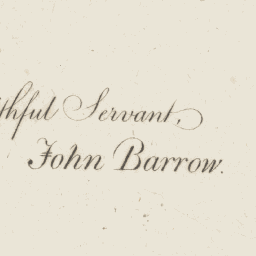 thful Servant,
John Barrow.